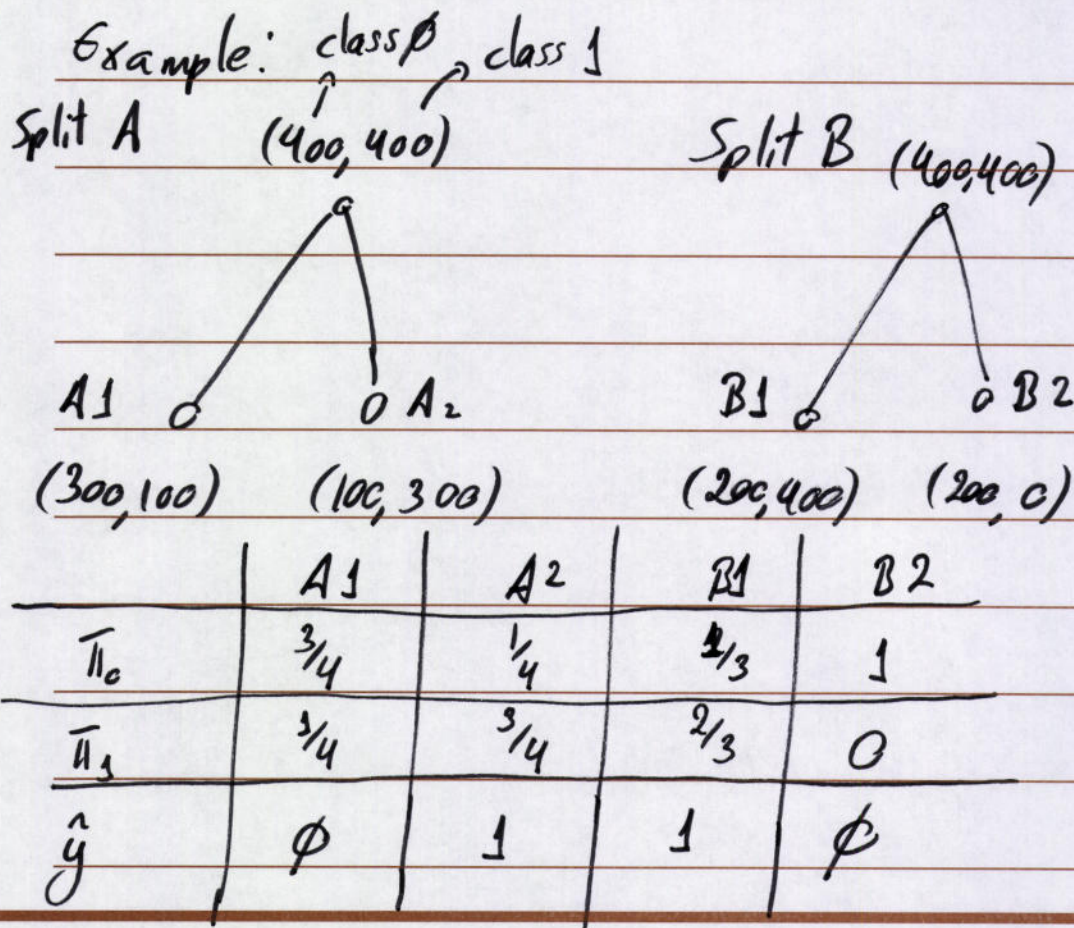 Example: class ∅ class 1
Split A (400, 400) Split B (400,400)
A1 A2 B1 B2
(300,100) (100,300) (200,400) (200,0)
A1 A2 B1 B2
π₀ 3/4 1/4 1/3 1
π₁ 1/4 3/4 2/3 0
ŷ ∅ 1 1 ∅